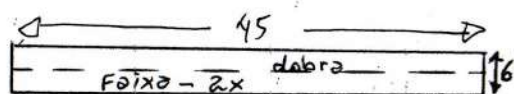 45
dobra
Faixa - 2x
6